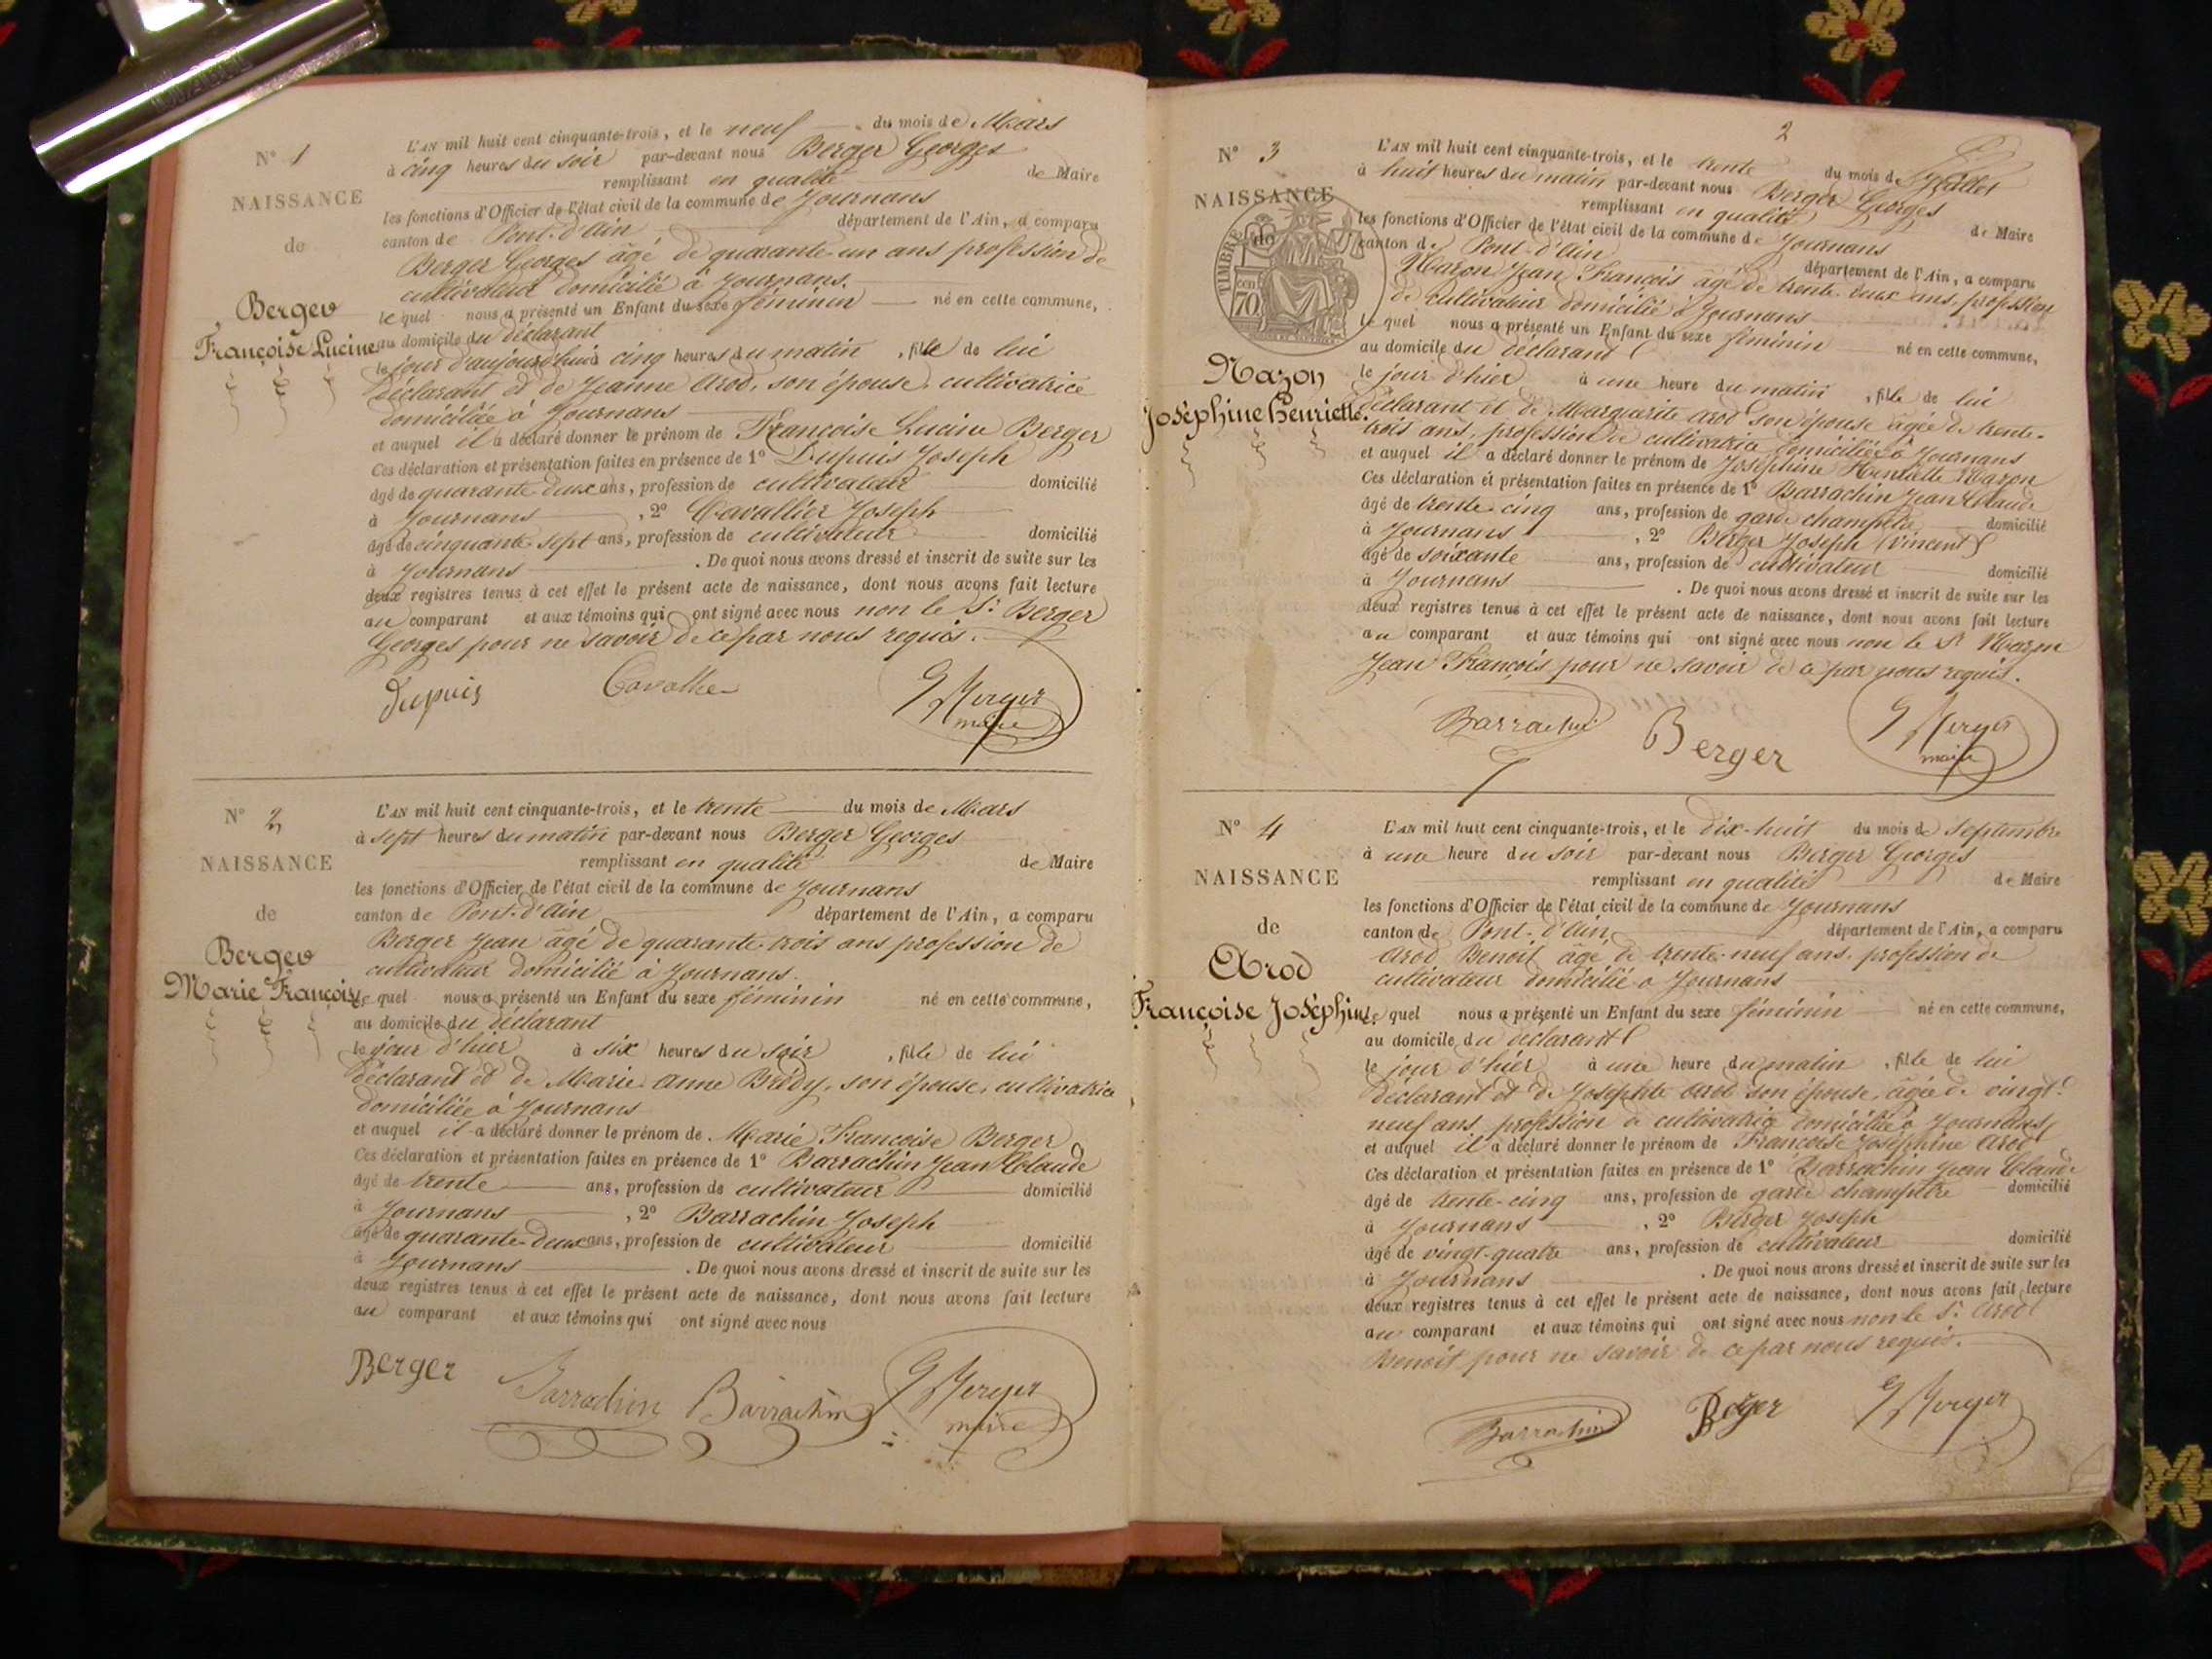 N° 1
NAISSANCE
de
Berger
Françoise Lucine
L'AN mil huit cent cinquante-trois, et le neuf du mois de Mars
à cinq heures du soir par-devant nous Berger Georges
remplissant en qualité de Maire
les fonctions d'Officier de l'état civil de la commune de Journans
canton de Pont-d'Ain département de l'Ain, a comparu
Berger Georges âgé de quarante-un ans profession de
cultivateur domicilié à Journans.
lequel nous a présenté un Enfant du sexe féminin né en cette commune,
au domicile du déclarant
le jour d'aujourd'hui à cinq heures du matin, fille de lui
déclarant et de Jeanne Arod, son épouse, cultivatrice
domiciliée à Journans
et auquel il a déclaré donner le prénom de Françoise Lucine Berger
Ces déclaration et présentation faites en présence de 1° Dupuis Joseph
âgé de quarante-deux ans, profession de cultivateur domicilié
à Journans, 2° Cavallier Joseph
âgé de cinquante-sept ans, profession de cultivateur domicilié
à Journans. De quoi nous avons dressé et inscrit de suite sur les
deux registres tenus à cet effet le présent acte de naissance, dont nous avons fait lecture
au comparant et aux témoins qui ont signé avec nous non le Sr Berger
Georges pour ne savoir de ce par nous requis.
Dupuis Cavallier G Berger
maire
N° 2
NAISSANCE
de
Berger
Marie Françoise
L'AN mil huit cent cinquante-trois, et le trente du mois de Mars
à sept heures du matin par-devant nous Berger Georges
remplissant en qualité de Maire
les fonctions d'Officier de l'état civil de la commune de Journans
canton de Pont-d'Ain département de l'Ain, a comparu
Berger Jean âgé de quarante-trois ans profession de
cultivateur domicilié à Journans.
lequel nous a présenté un Enfant du sexe féminin né en cette commune,
au domicile du déclarant
le jour d'hier à six heures du soir, fille de lui
déclarant et de Marie Anne Bridy, son épouse, cultivatrice
domiciliée à Journans
et auquel il a déclaré donner le prénom de Marie Françoise Berger
Ces déclaration et présentation faites en présence de 1° Barrachin Jean Claude
âgé de trente ans, profession de cultivateur domicilié
à Journans, 2° Barrachin Joseph
âgé de quarante-deux ans, profession de cultivateur domicilié
à Journans. De quoi nous avons dressé et inscrit de suite sur les
deux registres tenus à cet effet le présent acte de naissance, dont nous avons fait lecture
au comparant et aux témoins qui ont signé avec nous
Berger Barrachin Barrachin G Berger
maire
2
N° 3
NAISSANCE
de
TIMBRE
70
Mazon
Joséphine Henriette.
L'AN mil huit cent cinquante-trois, et le trente du mois de Juillet
à huit heures du matin par-devant nous Berger Georges
remplissant en qualité de Maire
les fonctions d'Officier de l'état civil de la commune de Journans
canton de Pont-d'Ain département de l'Ain, a comparu
Mazon Jean François âgé de trente-deux ans, profession
de cultivateur domicilié à Journans
lequel nous a présenté un Enfant du sexe féminin né en cette commune,
au domicile du déclarant
le jour d'hier à une heure du matin, fille de lui
déclarant et de Marguerite Arod son épouse âgée de trente-
trois ans, profession de cultivatrice domiciliée à Journans
et auquel il a déclaré donner le prénom de Joséphine Henriette Mazon
Ces déclaration et présentation faites en présence de 1° Barrachin Jean Claude
âgé de trente-cinq ans, profession de garde champêtre domicilié
à Journans, 2° Berger Joseph (Vincent)
âgé de soixante ans, profession de cultivateur domicilié
à Journans. De quoi nous avons dressé et inscrit de suite sur les
deux registres tenus à cet effet le présent acte de naissance, dont nous avons fait lecture
au comparant et aux témoins qui ont signé avec nous non le Sr Mazon
Jean François pour ne savoir de ce par nous requis.
Barrachin Berger G Berger
maire
N° 4
NAISSANCE
de
Arod
Françoise Joséphine
L'AN mil huit cent cinquante-trois, et le dix-huit du mois de septembre
à une heure du soir par-devant nous Berger Georges
remplissant en qualité de Maire
les fonctions d'Officier de l'état civil de la commune de Journans
canton de Pont-d'Ain, département de l'Ain, a comparu
Arod Benoit âgé de trente-neuf ans, profession de
cultivateur domicilié à Journans
lequel nous a présenté un Enfant du sexe féminin né en cette commune,
au domicile du déclarant
le jour d'hier à une heure du matin, fille de lui
déclarant et de Josephte Arod son épouse, âgée de vingt-
neuf ans, profession de cultivatrice domiciliée à Journans
et auquel il a déclaré donner le prénom de Françoise Joséphine Arod
Ces déclaration et présentation faites en présence de 1° Barrachin Jean Claude
âgé de trente-cinq ans, profession de garde champêtre domicilié
à Journans, 2° Berger Joseph
âgé de vingt-quatre ans, profession de cultivateur domicilié
à Journans. De quoi nous avons dressé et inscrit de suite sur les
deux registres tenus à cet effet le présent acte de naissance, dont nous avons fait lecture
au comparant et aux témoins qui ont signé avec nous non le Sr Arod
Benoit pour ne savoir de ce par nous requis.
Barrachin Berger G Berger